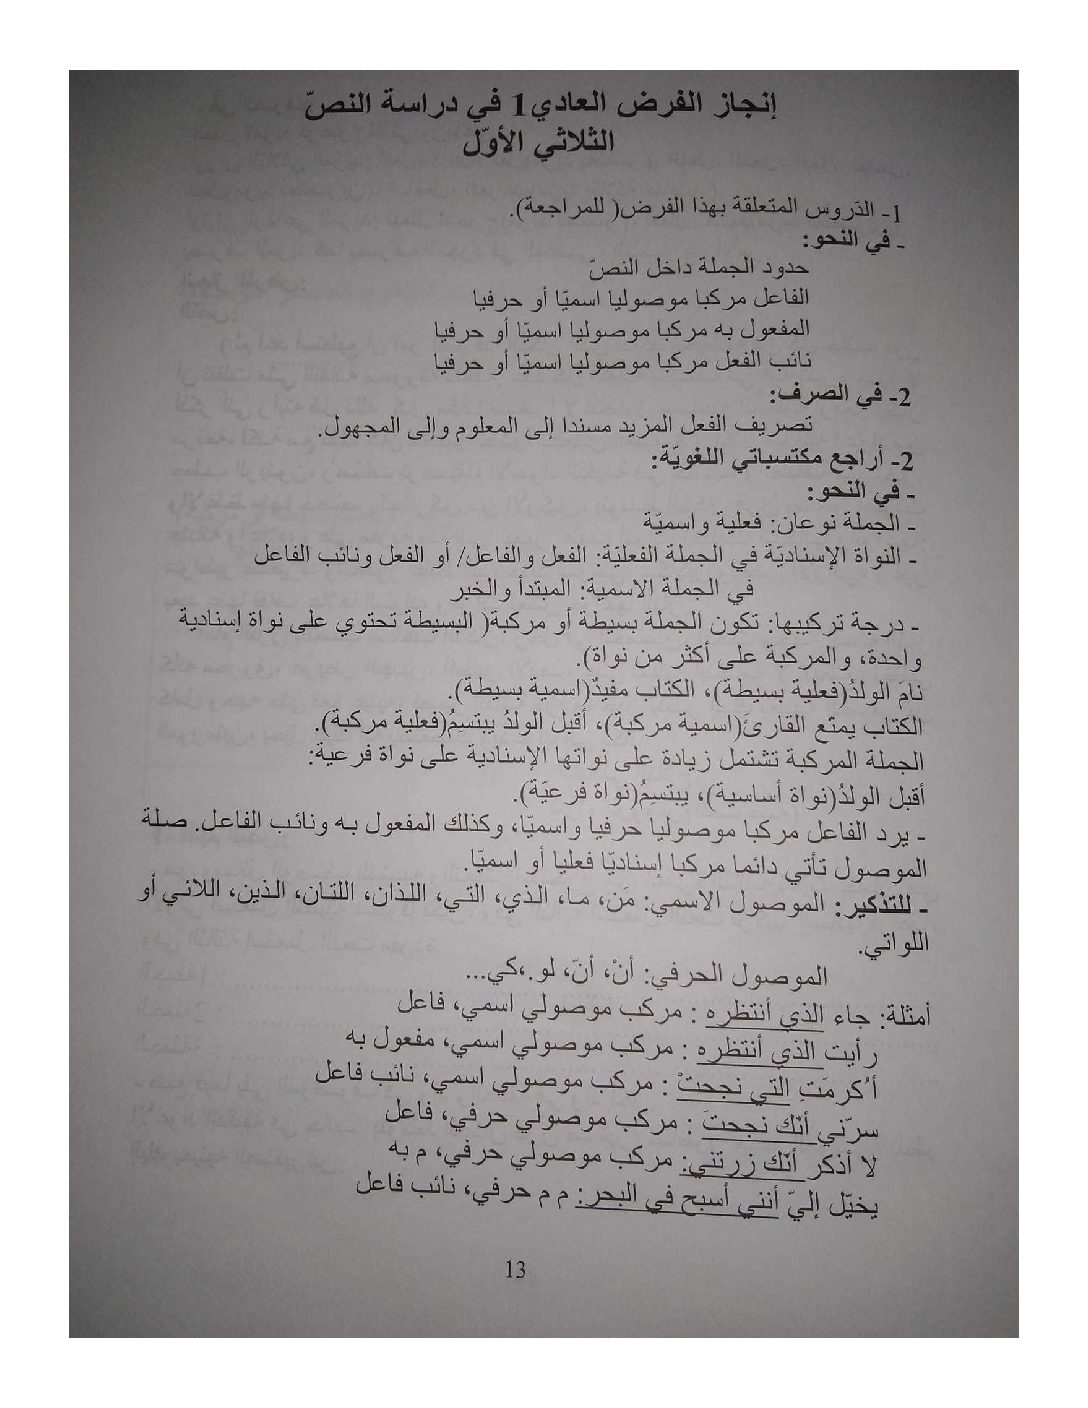 إنجاز الفرض العادي1 في دراسة النصّ
الثلاثي الأوّل
1- الدّروس المتعلقة بهذا الفرض( للمراجعة).
- في النحو:
حدود الجملة داخل النصّ
الفاعل مركبا موصوليا اسميّا أو حرفيا
المفعول به مركبا موصوليا اسميّا أو حرفيا
نائب الفعل مركبا موصوليا اسميّا أو حرفيا
2- في الصرف:
تصريف الفعل المزيد مسندا إلى المعلوم وإلى المجهول.
2- أراجع مكتسباتي اللغويّة:
- في النحو:
- الجملة نوعان: فعلية واسميّة
- النواة الإسناديّة في الجملة الفعليّة: الفعل والفاعل/ أو الفعل ونائب الفاعل
في الجملة الاسمية: المبتدأ والخبر
- درجة تركيبها: تكون الجملة بسيطة أو مركبة( البسيطة تحتوي على نواة إسنادية
واحدة، والمركبة على أكثر من نواة).
نامَ الولدُ(فعلية بسيطة)، الكتاب مفيدٌ(اسمية بسيطة).
الكتاب يمتّع القارئَ(اسمية مركبة)، أقبل الولدُ يبتسمُ(فعلية مركبة).
الجملة المركبة تشتمل زيادة على نواتها الإسنادية على نواة فرعية:
أقبل الولدُ(نواة أساسية)، يبتسمُ(نواة فرعيّة).
- يرد الفاعل مركبا موصوليا حرفيا واسميّا، وكذلك المفعول به ونائب الفاعل. صلة
الموصول تأتي دائما مركبا إسناديّا فعليا أو اسميّا.
- للتذكير: الموصول الاسمي: مَن، ما، الذي، التي، اللذان، اللتان، الذين، اللائي أو
اللواتي.
الموصول الحرفي: أنْ، أنّ، لو.،كي...
أمثلة: جاء الذي أنتظره : مركب موصولي اسمي، فاعل
رأيت الذي أنتظره : مركب موصولي اسمي، مفعول به
أُكرمَتِ التي نجحتْ : مركب موصولي اسمي، نائب فاعل
سرّني أنّك نجحتَ : مركب موصولي حرفي، فاعل
لا أذكر أنّك زرتني: مركب موصولي حرفي، م به
يخيّل إليّ أنني أسبح في البحر: م م حرفي، نائب فاعل
13